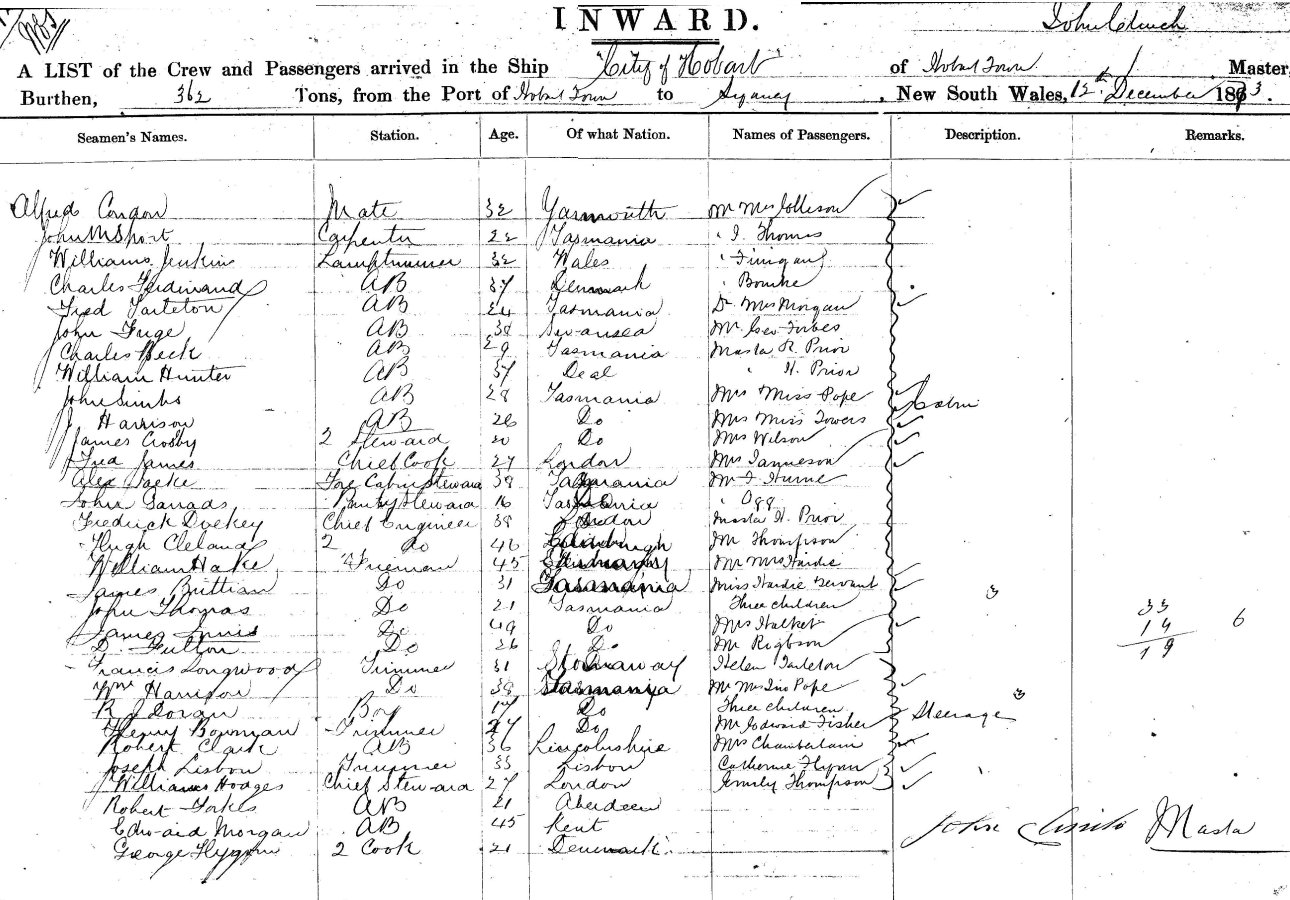 INWARD.
John Clinch
A LIST of the Crew and Passengers arrived in the Ship "City of Hobart" of Hobart Town / Master,
Burthen, 362 Tons, from the Port of Hobart Town to Sydney, New South Wales, 12th December 1873.
Seamen's Names. Station. Age. Of what Nation. Names of Passengers. Description. Remarks.
Alfred Condon Mate 32 Yarmouth Mr Mrs Collison
John McShort Carpenter 22 Tasmania " J. Thomas
Williams Jenkins Lamptrimmer 32 Wales " Finigan
Charles Ferdinand AB 37 Denmark " Bourke
Fred Tarleton AB 24 Tasmania Dr Mrs Morgan
John Fuge AB 38 Swansea Mr Geo Forbes
Charles Beck AB 29 Tasmania Masta R. Prior
William Hunter AB 37 Deal " H. Prior
John Simbs AB 28 Tasmania Mrs Miss Pope Cabin
J Harrison AB 26 Do Mrs Miss Towers
James Crosby 2 Steward 20 Do Mrs Wilson
Fred James Chief Cook 27 London Mrs Jamieson
Alex Fore Cabin Steward 38 Tasmania Mr J Hume
John Pantry Steward 16 Tasmania " Ogg
Fredrick Chief Engineer 38 London Masta H. Prior
Hugh Cleland 2 do 46 Edinburgh Mr Thompson
William Hake Fireman 45 Mr Mrs Hardie
James Brittian Do 31 Tasmania Miss Hardie Servant
John Thomas Do 21 Tasmania Three children 3 33
James Do 49 Do Mrs Halket 14 6
D. Fulton Do 26 Do Mr 19
Francis Longwood Trimmer 31 Stornaway Helen Tarleton
Wm Harrison Do 38 Tasmania Mr Mrs Jno Pope
R J Doran Boy 17 Do Three children 3
Henry Bowman Trimmer 27 Do Mr Edward Fisher Steerage
Robert Clark AB 36 Lincolnshire Mrs Chamberlain
Joseph Lisbon Trimmer 33 Lisbon Catherine Flynn
Williams Hodges Chief Steward 27 London Emily Thompson
Robert Forkes AB 21 Aberdeen
Edward Morgan AB 45 Kent John Clinch Masta
George Flygnn 2 Cook 21 Denmark